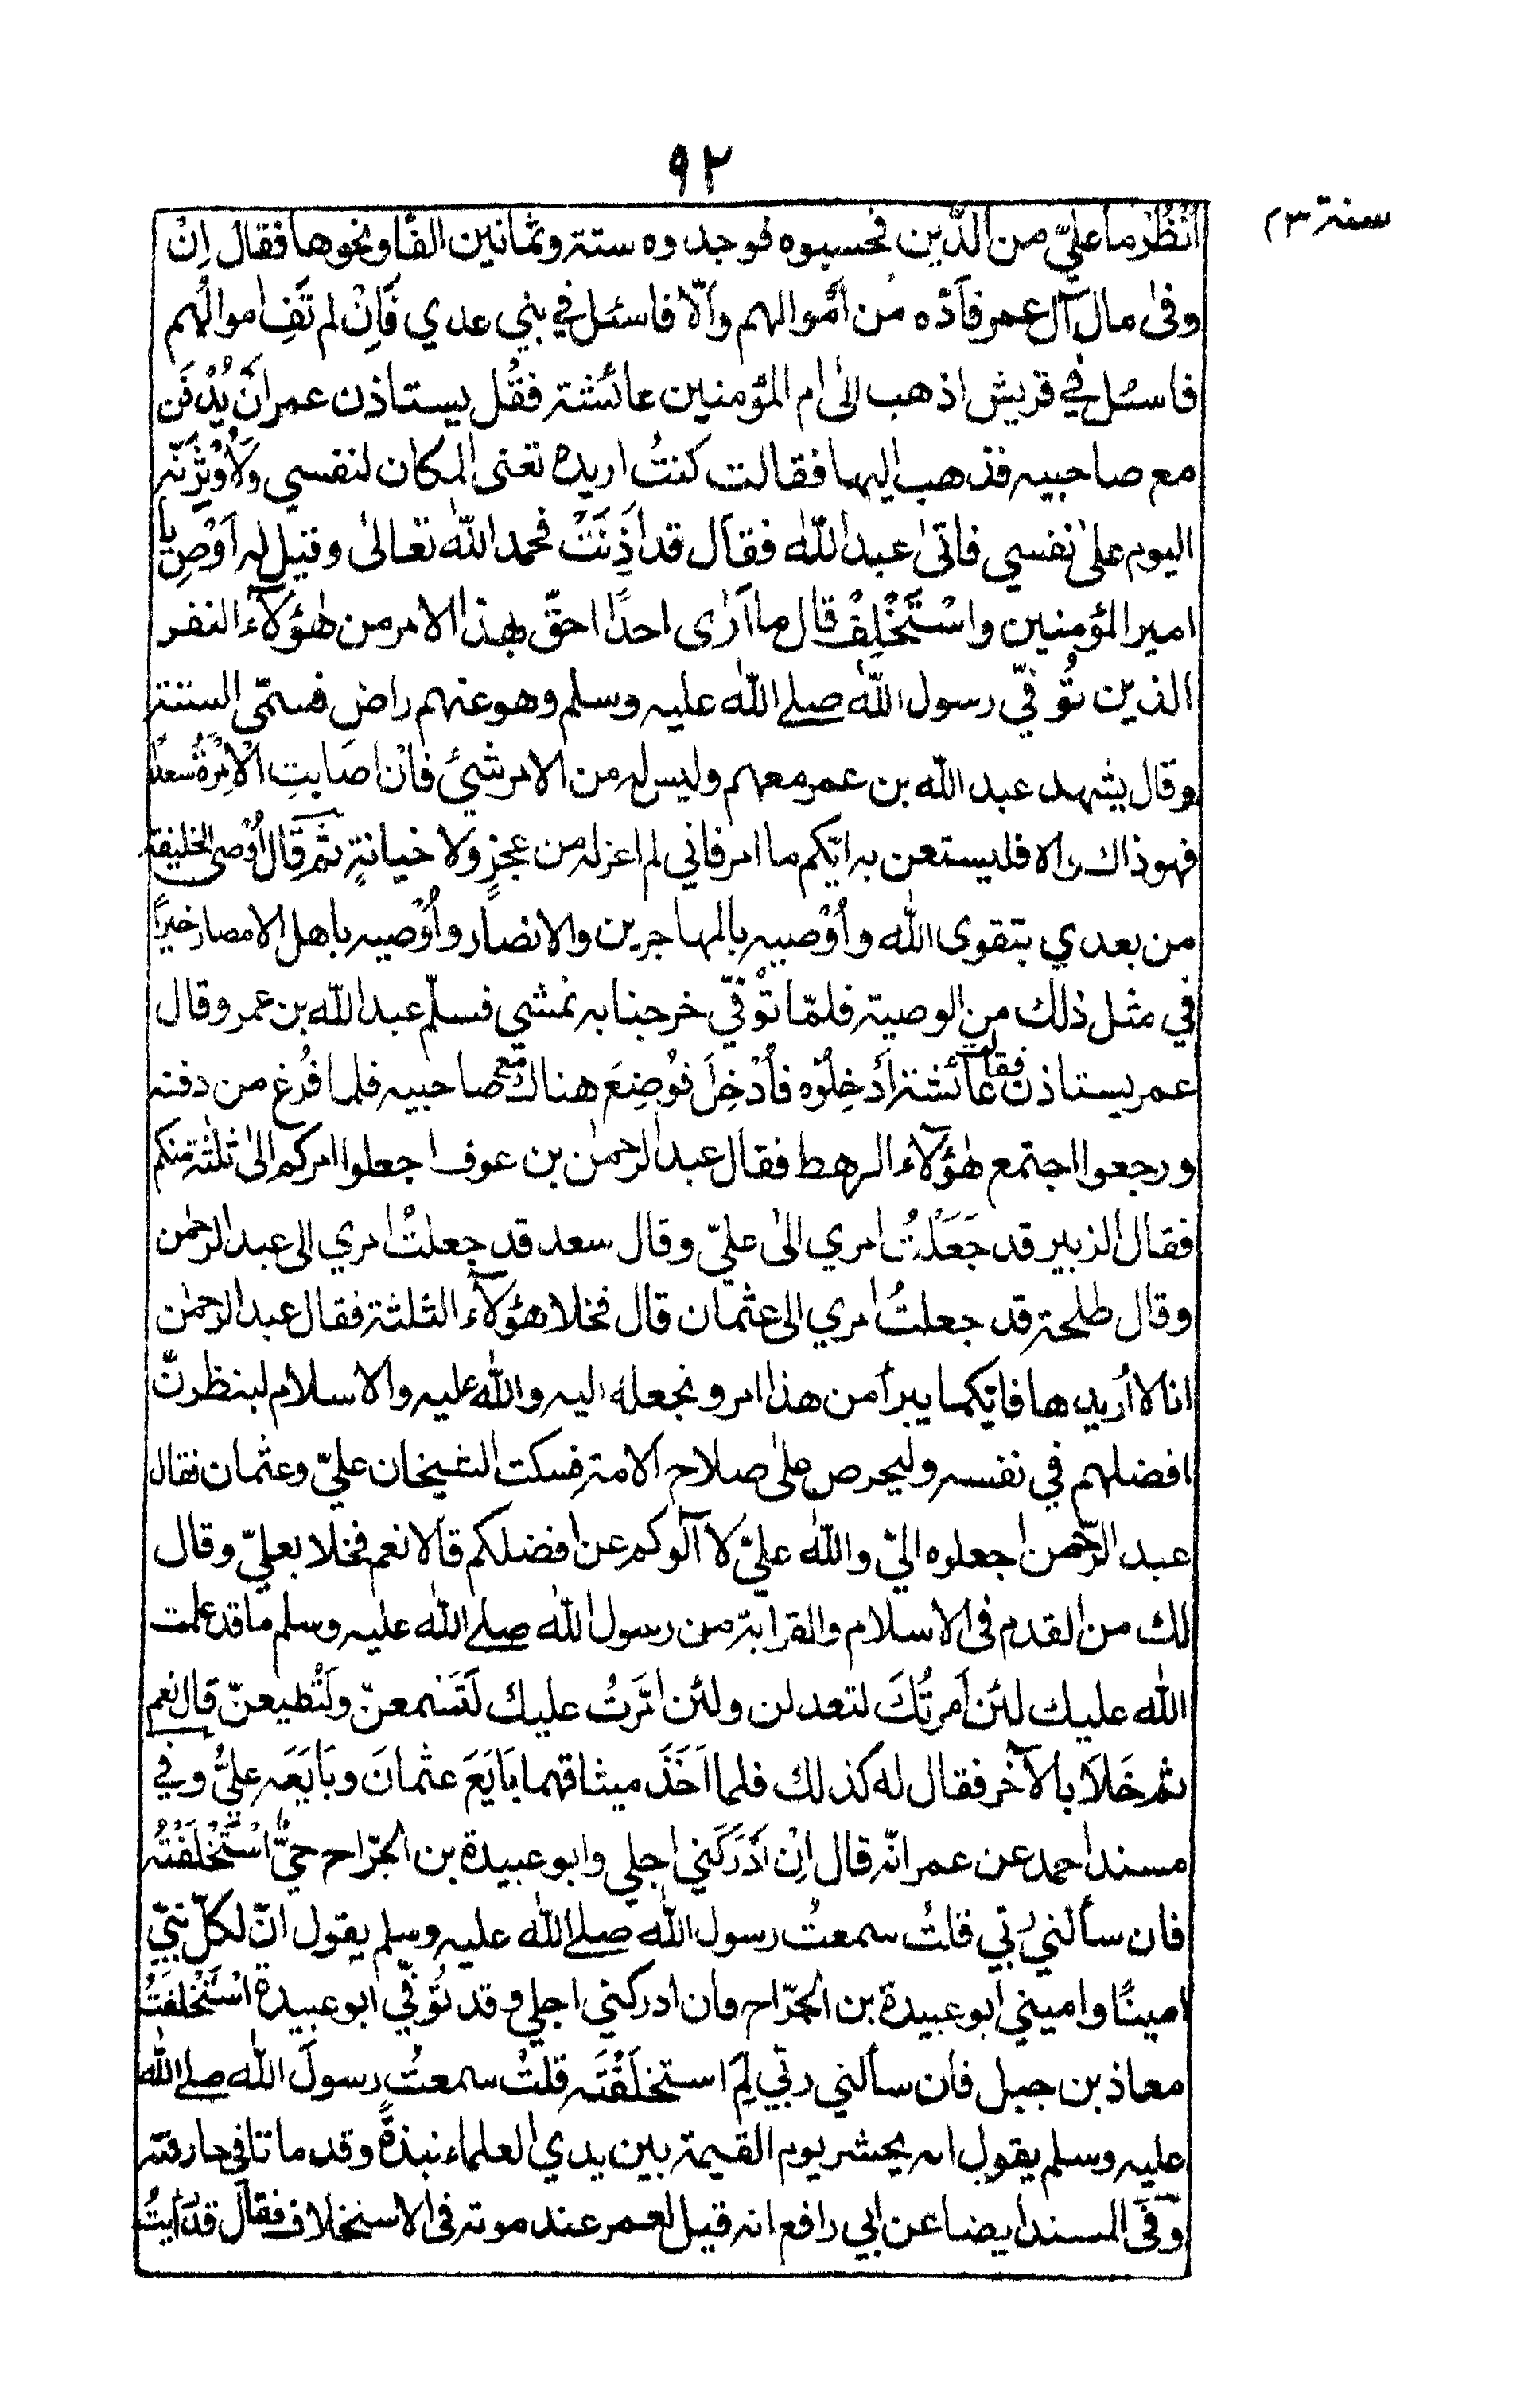 ٩٢
سنة ٢٣
اُنْظُرْ ما عليّ من الدَّين فحسبوه فوجدوه ستة وثمانين الفًا ونحوها فقال اِنْ
وفىٰ مال آل عمر فاَدِّه من اَموالهم واِلّا فاسئل في بني عدي فَاِنْ لم تَفِ اموالهم
فاسئل في قريش اذهب الىٰ ام المؤمنين عائشة فقُل يستاذن عمر اَنْ يُدْفَن
مع صاحبيه فذهب اليها فقالت كنتُ اريده تعنى المكان لنفسي وَلَاُوْثِرَنّه
اليوم علىٰ نفسي فاتىٰ عبد اللّٰه فقال قد اَذِنَتْ فحمد اللّٰه تعالىٰ وقيل له اَوْصِ يا
امير المؤمنين واسْتَخْلِفْ قال ما اَرٰى احدًا احقّ بهذا الامر من هٰؤلآء النفر
الذين تُوفّي رسول اللّٰه صلے اللّٰه عليه وسلم وهو عنهم راض فسمّى الستة
وقال يشهد عبد اللّٰه بن عمر معهم وليس له من الامر شيئ فاِنْ اصَابتِ الْاِمْرَةُ سعدًا
فهو ذاك والا فليستعن به ايّكم ما امر فاني لم اعزله من عجزٍ ولا خيانةٍ ثم قال اُوْصي الخليفة
من بعدي بتقوى اللّٰه واُوْصيه بالمهاجرين والانصار واُوْصيه باهل الامصار خيرًا
في مثل ذلك من الوصية فلمّا تُوْفّي خرجنا به نمشي فسلّم عبد اللّٰه بن عمر وقال
عمر يستاذن فقالت عائشة اَدخِلُوْه فاُدْخِلَ فوُضِعَ هناك مع صاحبيه فلما فُرغ من دفنه
ورجعوا اجتمع هٰؤلآء الرهط فقال عبد الرحمٰن بن عوف اجعلوا امركم الىٰ ثلٰثة منكم
فقال الزبير قد جَعَلْتُ امري الىٰ عليّ وقال سعد قد جعلتُ امري الى عبد الرحمٰن
وقال طلحة قد جعلتُ امري الى عثمان قال فخلا هؤلآء الثلثة فقال عبد الرحمٰن
انا لا اُريدها فايّكما يبرأ من هذا امر ونجعله اليه واللّٰه عليه والاسلام لينظرنّ
افضلهم في نفسه وليحرص علىٰ صلاح الامة فسكت الشيخان عليّ وعثمان فقال
عبد الرّحمن اجعلوه اليّ واللّٰه عليَّ لا آلوكم عن افضلكم قالا نعم فخلا بعليّ وقال
لك من القدم فى الاسلام والقرابة من رسول اللّٰه صلے اللّٰه عليه وسلم ما قد علمت
اللّٰه عليك لئن اَمرتُكَ لتعدلن ولئن امّرتُ عليك لَتَسْمعنّ ولَتُطيعنّ قال نعم
ثم خَلَا بالآخر فقال له كذلك فلما اَخَذَ ميثاقهما بَايَعَ عثمانَ وبَايَعَه عليٌّ وفي
مسند احمد عن عمر انّه قال اِنْ اَدْرَكَني اجلي وابو عبيدة بن الجرّاح حيٌّ اسْتَخْلَفْتُه
فان سألني ربّي قلتُ سمعتُ رسول اللّٰه صلے اللّٰه عليه وسلم يقول انّ لكلّ نبيّ
امينًا واميني ابو عبيدة بن الجرّاح وان ادركني اجلي وقد تُوفّي ابو عبيدة اسْتَخْلَفْتُ
معاذ بن جبل فان سألني ربّي لِمَ استخلَفْتَه قلتُ سمعتُ رسولَ اللّٰه صلے اللّٰه
عليه وسلم يقول انه يحشر يوم القيمة بين يدي العلماء نبذةً وقد ماتا في خلافته
وفي المسند ايضا عن ابي رافع انه قيل لعمر عند موته فى الاستخلاف فقال قد رَأيتُ